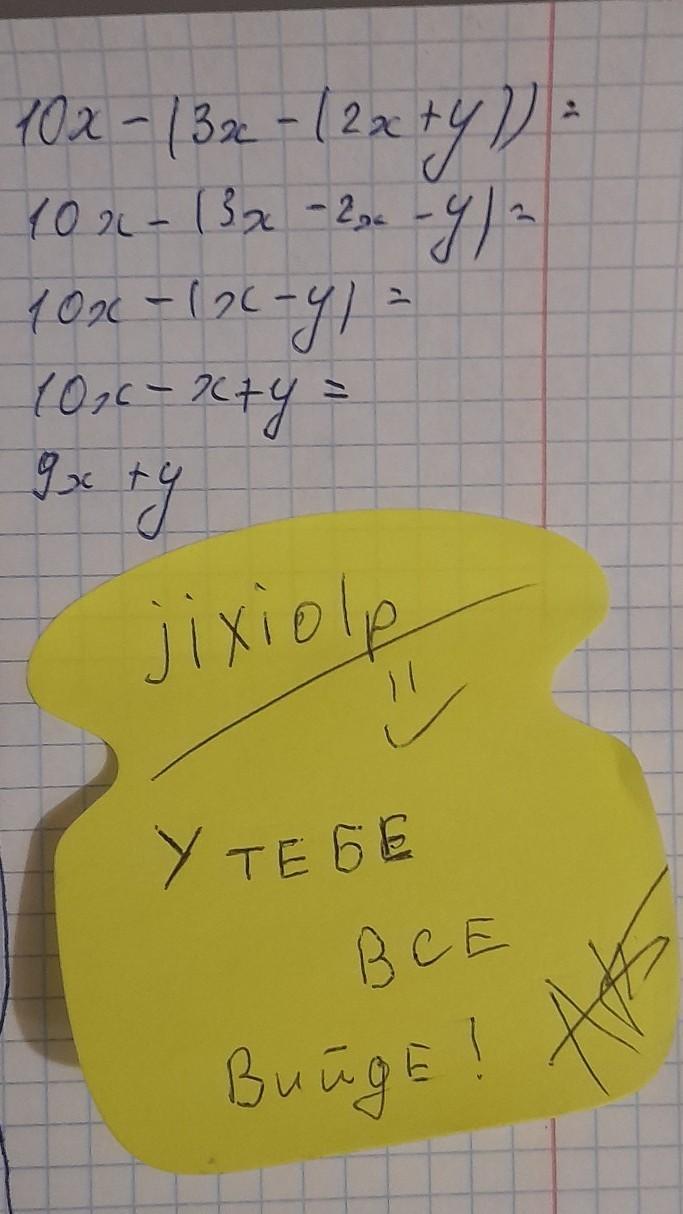 10x - (3x - (2x + y)) =
10x - (3x - 2x - y) =
10x - (x - y) =
10x - x + y =
9x + y
jixiolp
У ТЕБЕ
ВСЕ
Вийде!